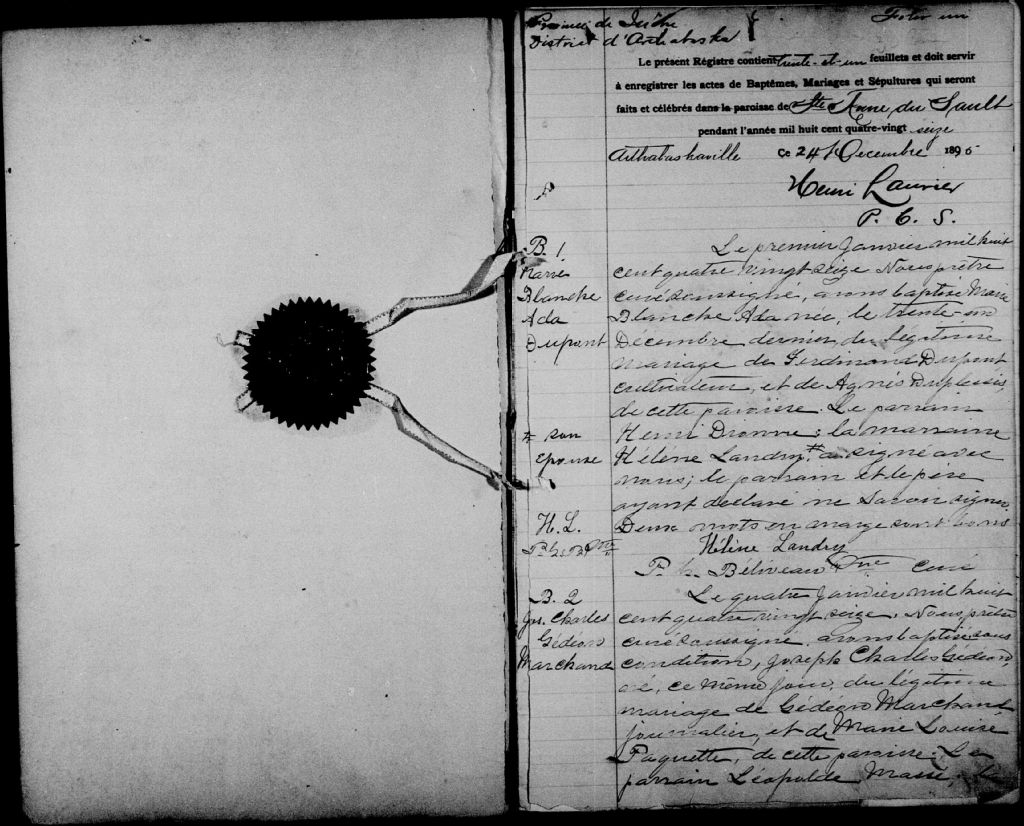 Province de Québec Folio un
District d'Arthabaska
Le présent Régistre contient trente-et-un feuillets et doit servir
à enregistrer les actes de Baptêmes, Mariages et Sépultures qui seront
faits et célébrés dans la paroisse de Ste Anne du Sault
pendant l'année mil huit cent quatre-vingt seize
Arthabaskaville Ce 24 Décembre 1895
Henri Laurier
P. C. S.
B. 1
Marie
Blanche
Ada
Dupont
Le premier Janvier mil huit
cent quatre vingt seize Nous prêtre
curé soussigné, avons baptisé Marie
Blanche Ada née, le trente-un
Décembre dernier, du légitime
mariage de Ferdinand Dupont
cultivateur, et de Agnès Duplessis,
de cette paroisse. Le parrain
Henri Dionne; la marraine
Hélène Landry # a signé avec
nous; le parrain et le père
ayant déclaré ne savoir signer.
Deux mots en marge sont bons
# son
Epouse
H. L.
Hélène Landry
P. h. Béliveau Ptre curé
B. 2
Jos. Charles
Gédéon
Marchand
Le quatre Janvier mil huit
cent quatre vingt seize, Nous prêtre
curé soussigné avons baptisé sous
condition, Joseph Charles Gédéon,
né, ce même jour, du légitime
mariage de Gédéon Marchand
journalier, et de Marie Louise
Paquette, de cette paroisse. Le
parrain Léopolde Massé, la